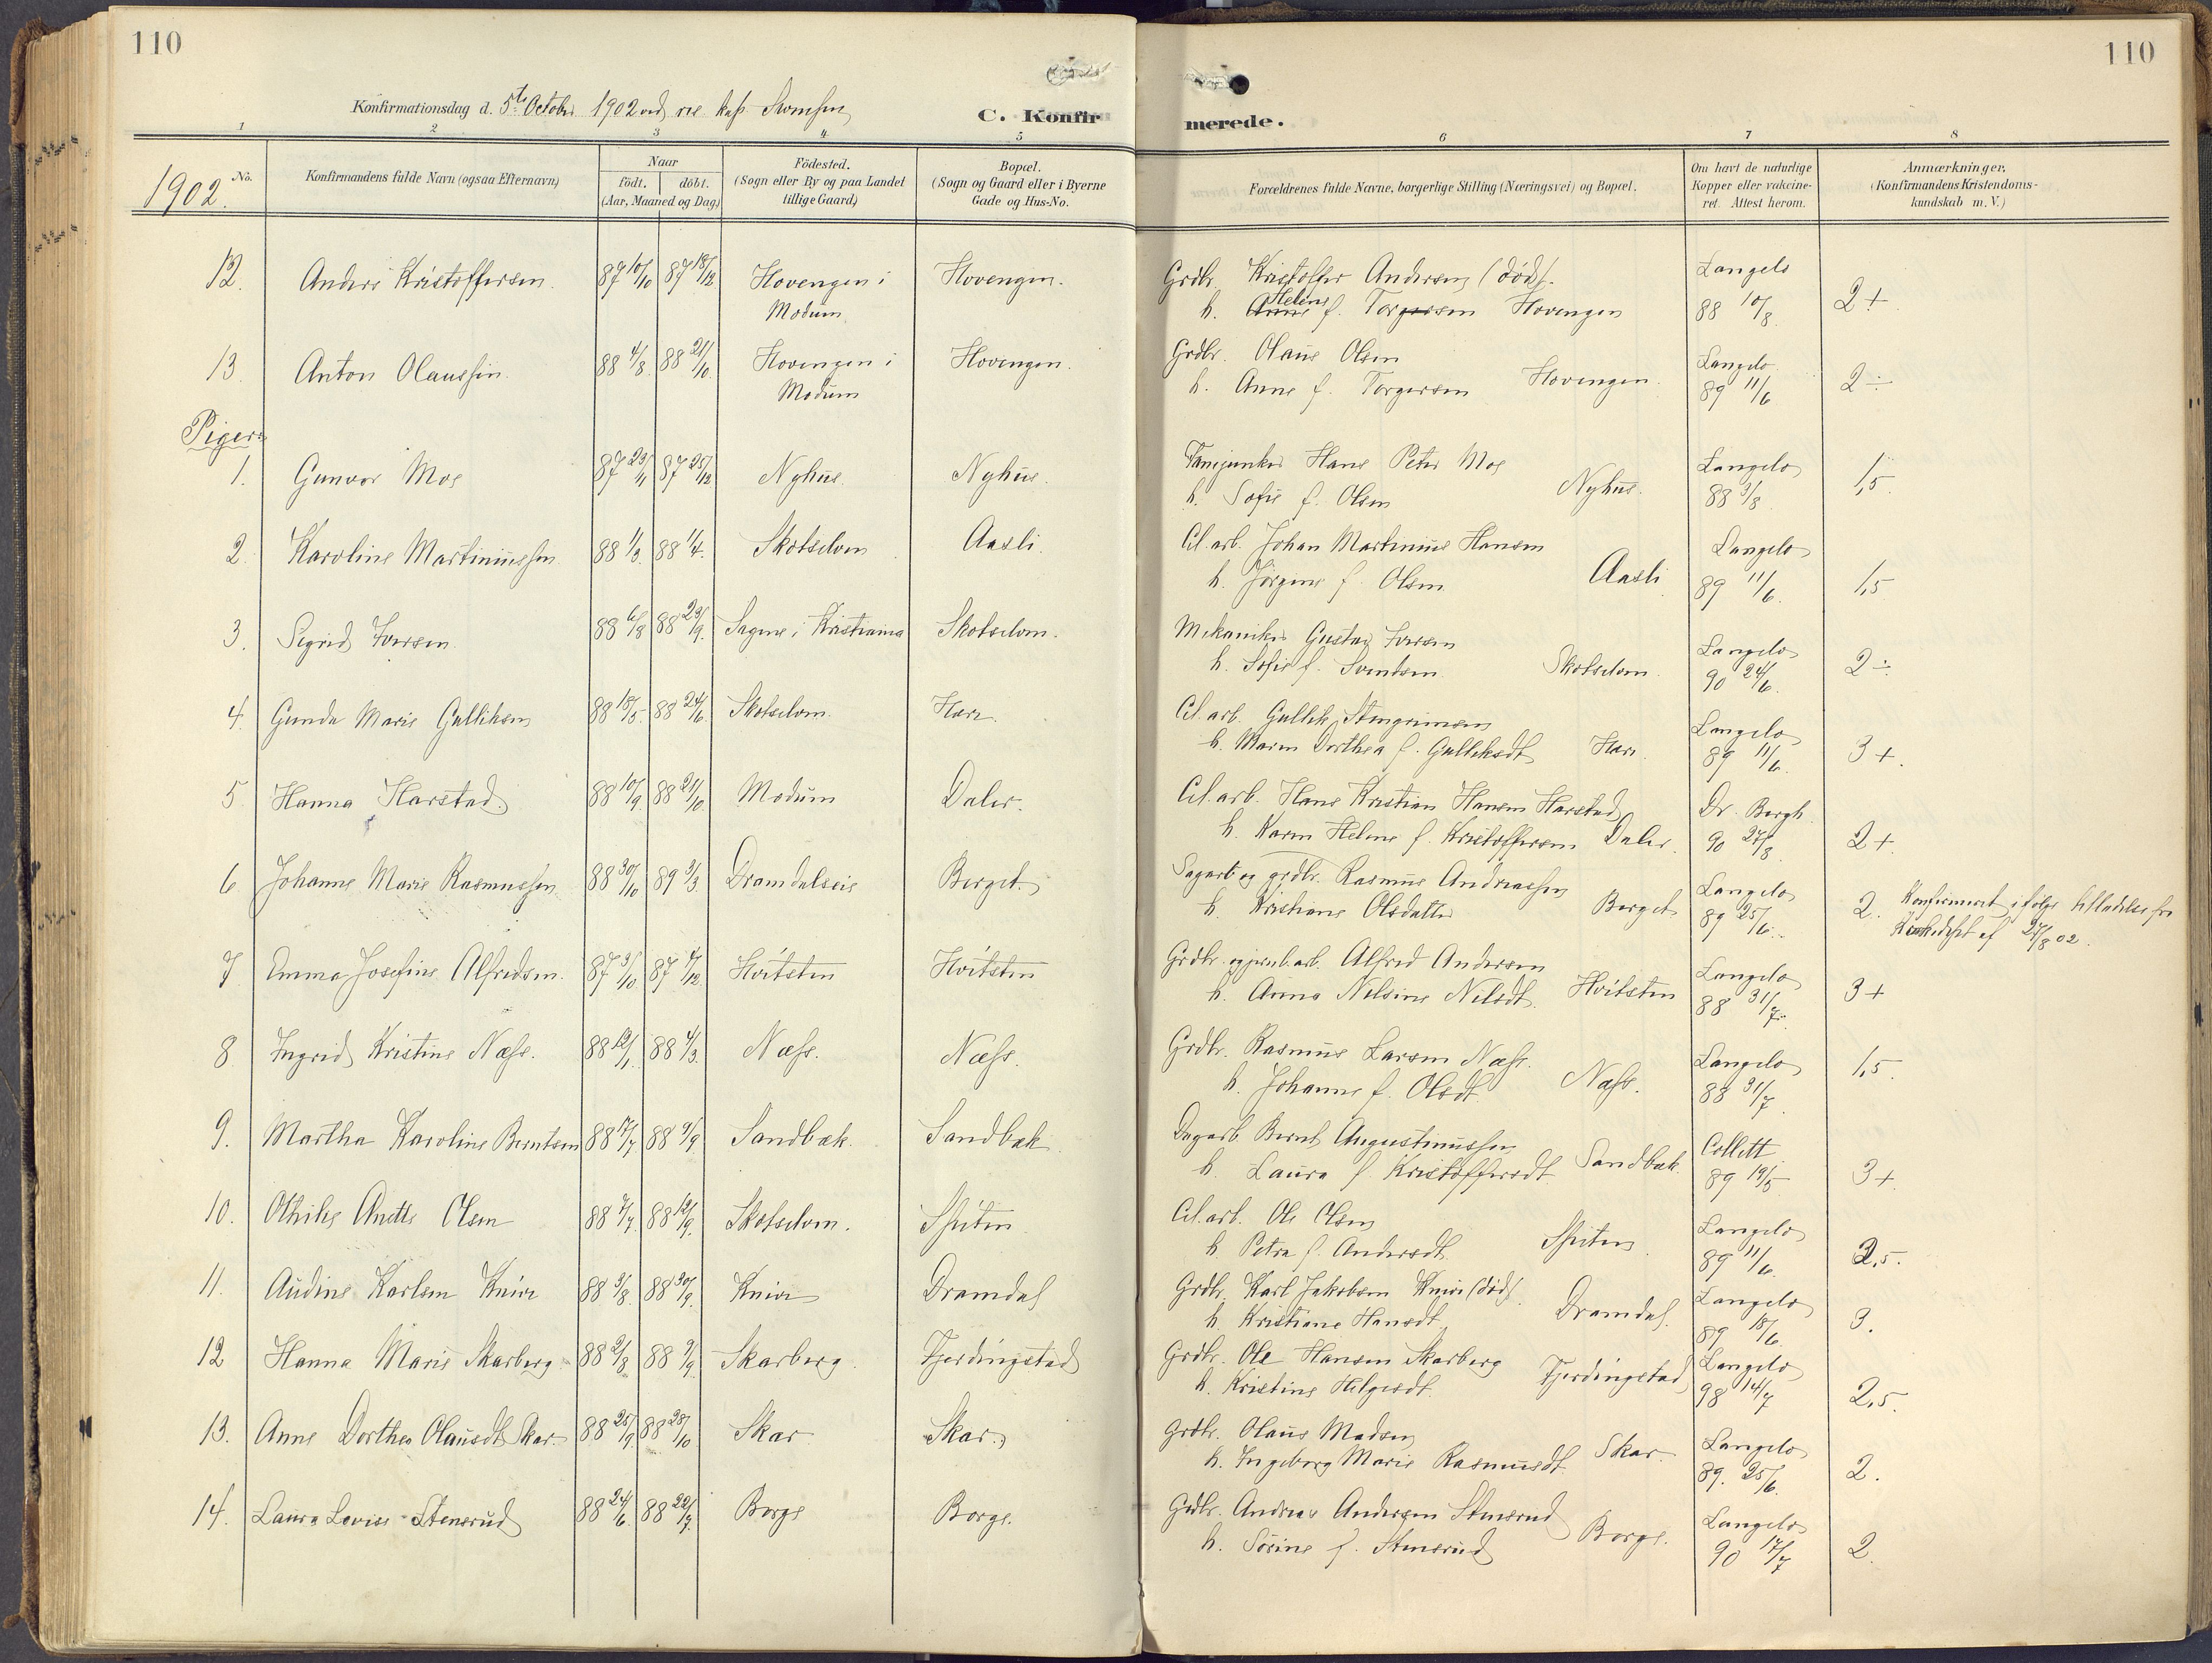 110
110
Konfirmationsdag d. 5te Octobr 1902 ved res kap Svensen
C. Konfirmerede.
1 2 3 4 5 6 7 8
1902. No.
Konfirmandens fulde Navn (ogsaa Efternavn)
Naar
födt. döbt.
(Aar, Maaned og Dag.)
Födested.
(Sogn eller By og paa Landet
tillige Gaard)
Bopæl.
(Sogn og Gaard eller i Byerne
Gade og Hus-No.
Forældrenes fulde Navne, borgerlige Stilling (Næringsvei) og Bopæl.
Om havt de naturlige
Kopper eller vakcine-
ret. Attest herom.
Anmærkninger.
(Konfirmandens Kristendoms-
kundskab m. V.)
12. Anders Kristoffersen. 87 10/10 87 18/12 Hovengen i Hovengen. Grdbr. Kristoffer Andersen (död). Langelo
Modum h. Anne Helene f. Torgersen Hovengen 88 10/8 2+
13 Anton Olaussen. 88 4/8 88 21/10 Hovengen i Hovengen. Grdbr. Olaus Olsen Langelo
Modum h. Anne f. Torgersen Hovengen. 89 11/6 2÷
Piger:
1. Gunvor Moe 87 23/11 87 25/12 Nyhus. Nyhus. Fanejunker Hans Peter Moe Langelo
h. Sofie f. Olsen Nyhus. 88 3/8 1,5
2. Karoline Martiniussen 88 1/3 88 1/4. Skotselven Aasli. Cel. arb. Johan Martinius Hansen Langelo
h. Jörgine f. Olsen Aasli 89 11/6. 1,5
3. Sigrid Iversen 88 6/8 88 23/9. Sagene i Kristiania Skotselven. Mekaniker Gustav Iversen Langelo
h. Sofie f. Svendsen Skotselven. 90 24/6. 2÷
4. Gunda Marie Gulliksen 88 18/5 88 24/6 Skotselven. Hær. Cel. arb. Gullik Stengrimsen Langelo
h. Maren Dorthea f. Gulliksdt Hær. 89 11/6. 3+.
5 Hanna Harstad. 88 10/9 88 21/10 Modum Daler. Cel. arb. Hans Kristian Hansen Harstad Dr. Borgh.
h. Karen Helene f. Kristoffersen Daler. 90 27/8. 2+.
6. Johanne Marie Rasmussen. 88 30/10 89 3/3 Dramdalseie Berget. Sagarb og grdbr. Rasmus Andreassen Langelo
h. Kristiane Olsdatter Berget 89 25/6. 2. Konfirmeret ifølge tilladelse fra
Kirkedept af 27/8 02.
7 Emma Josefine Alfredsen. 87 31/10 87 4/12 Hvitsten Hvitsten Grdbr. og jernb. arb. Alfred Andersen Langelo
h. Anna Nilsine Nilsdt. Hvitsten 88 31/7. 3+
8 Ingrid Kristine Næss. 88 12/1. 88 4/3. Næss. Næss. Grdbr. Rasmus Larsen Næss. Langelo
h. Johanne f. Olsdt. Næss. 88 31/7. 1,5.
9. Martha Karoline Berntsen 88 17/7 88 9/9 Sandbæk. Sandbæk Dagarb. Bernt Augustinussen Collett
h. Laura f. Kristoffersdt. Sandbæk. 89 19/5 3+.
10. Othilie Anette Olsen 88 7/7. 88 12/9. Skotselven. Sputen Cel. arb. Ole Olsen Langelo
h. Petra f. Andersdt. Sputen 89 11/6. 2,5.
11. Audine Karlsen Knive 88 3/8. 88 30/9. Knive Dramdal Grdbr. Karl Jakobsen Knive (död) Langelo
h. Kristiane Hansdt. Dramdal. 89 18/6 3.
12 Hanna Marie Skarberg 88 2/8 88 9/9 Skarberg Fjerdingstad Grdbr. Ole Hansen Skarberg Langelo
h. Kristine Helgesdt. Fjerdingstad 98 14/7 2,5.
13. Anne Dorthea Olausdt. Skar. 88 25/9 88 28/10 Skar Skar. Grdbr. Olaus Madsen Langelo
h. Ingeborg Marie Rasmusdt. Skar. 89. 25/6. 2.
14. Laura Lovise Stensrud 88 24/6 88 22/7. Borge Borge. Grdbr. Andreas Andersen Stensrud Langelo
h. Sörine f. Stensrud Borge. 90 17/7 2.